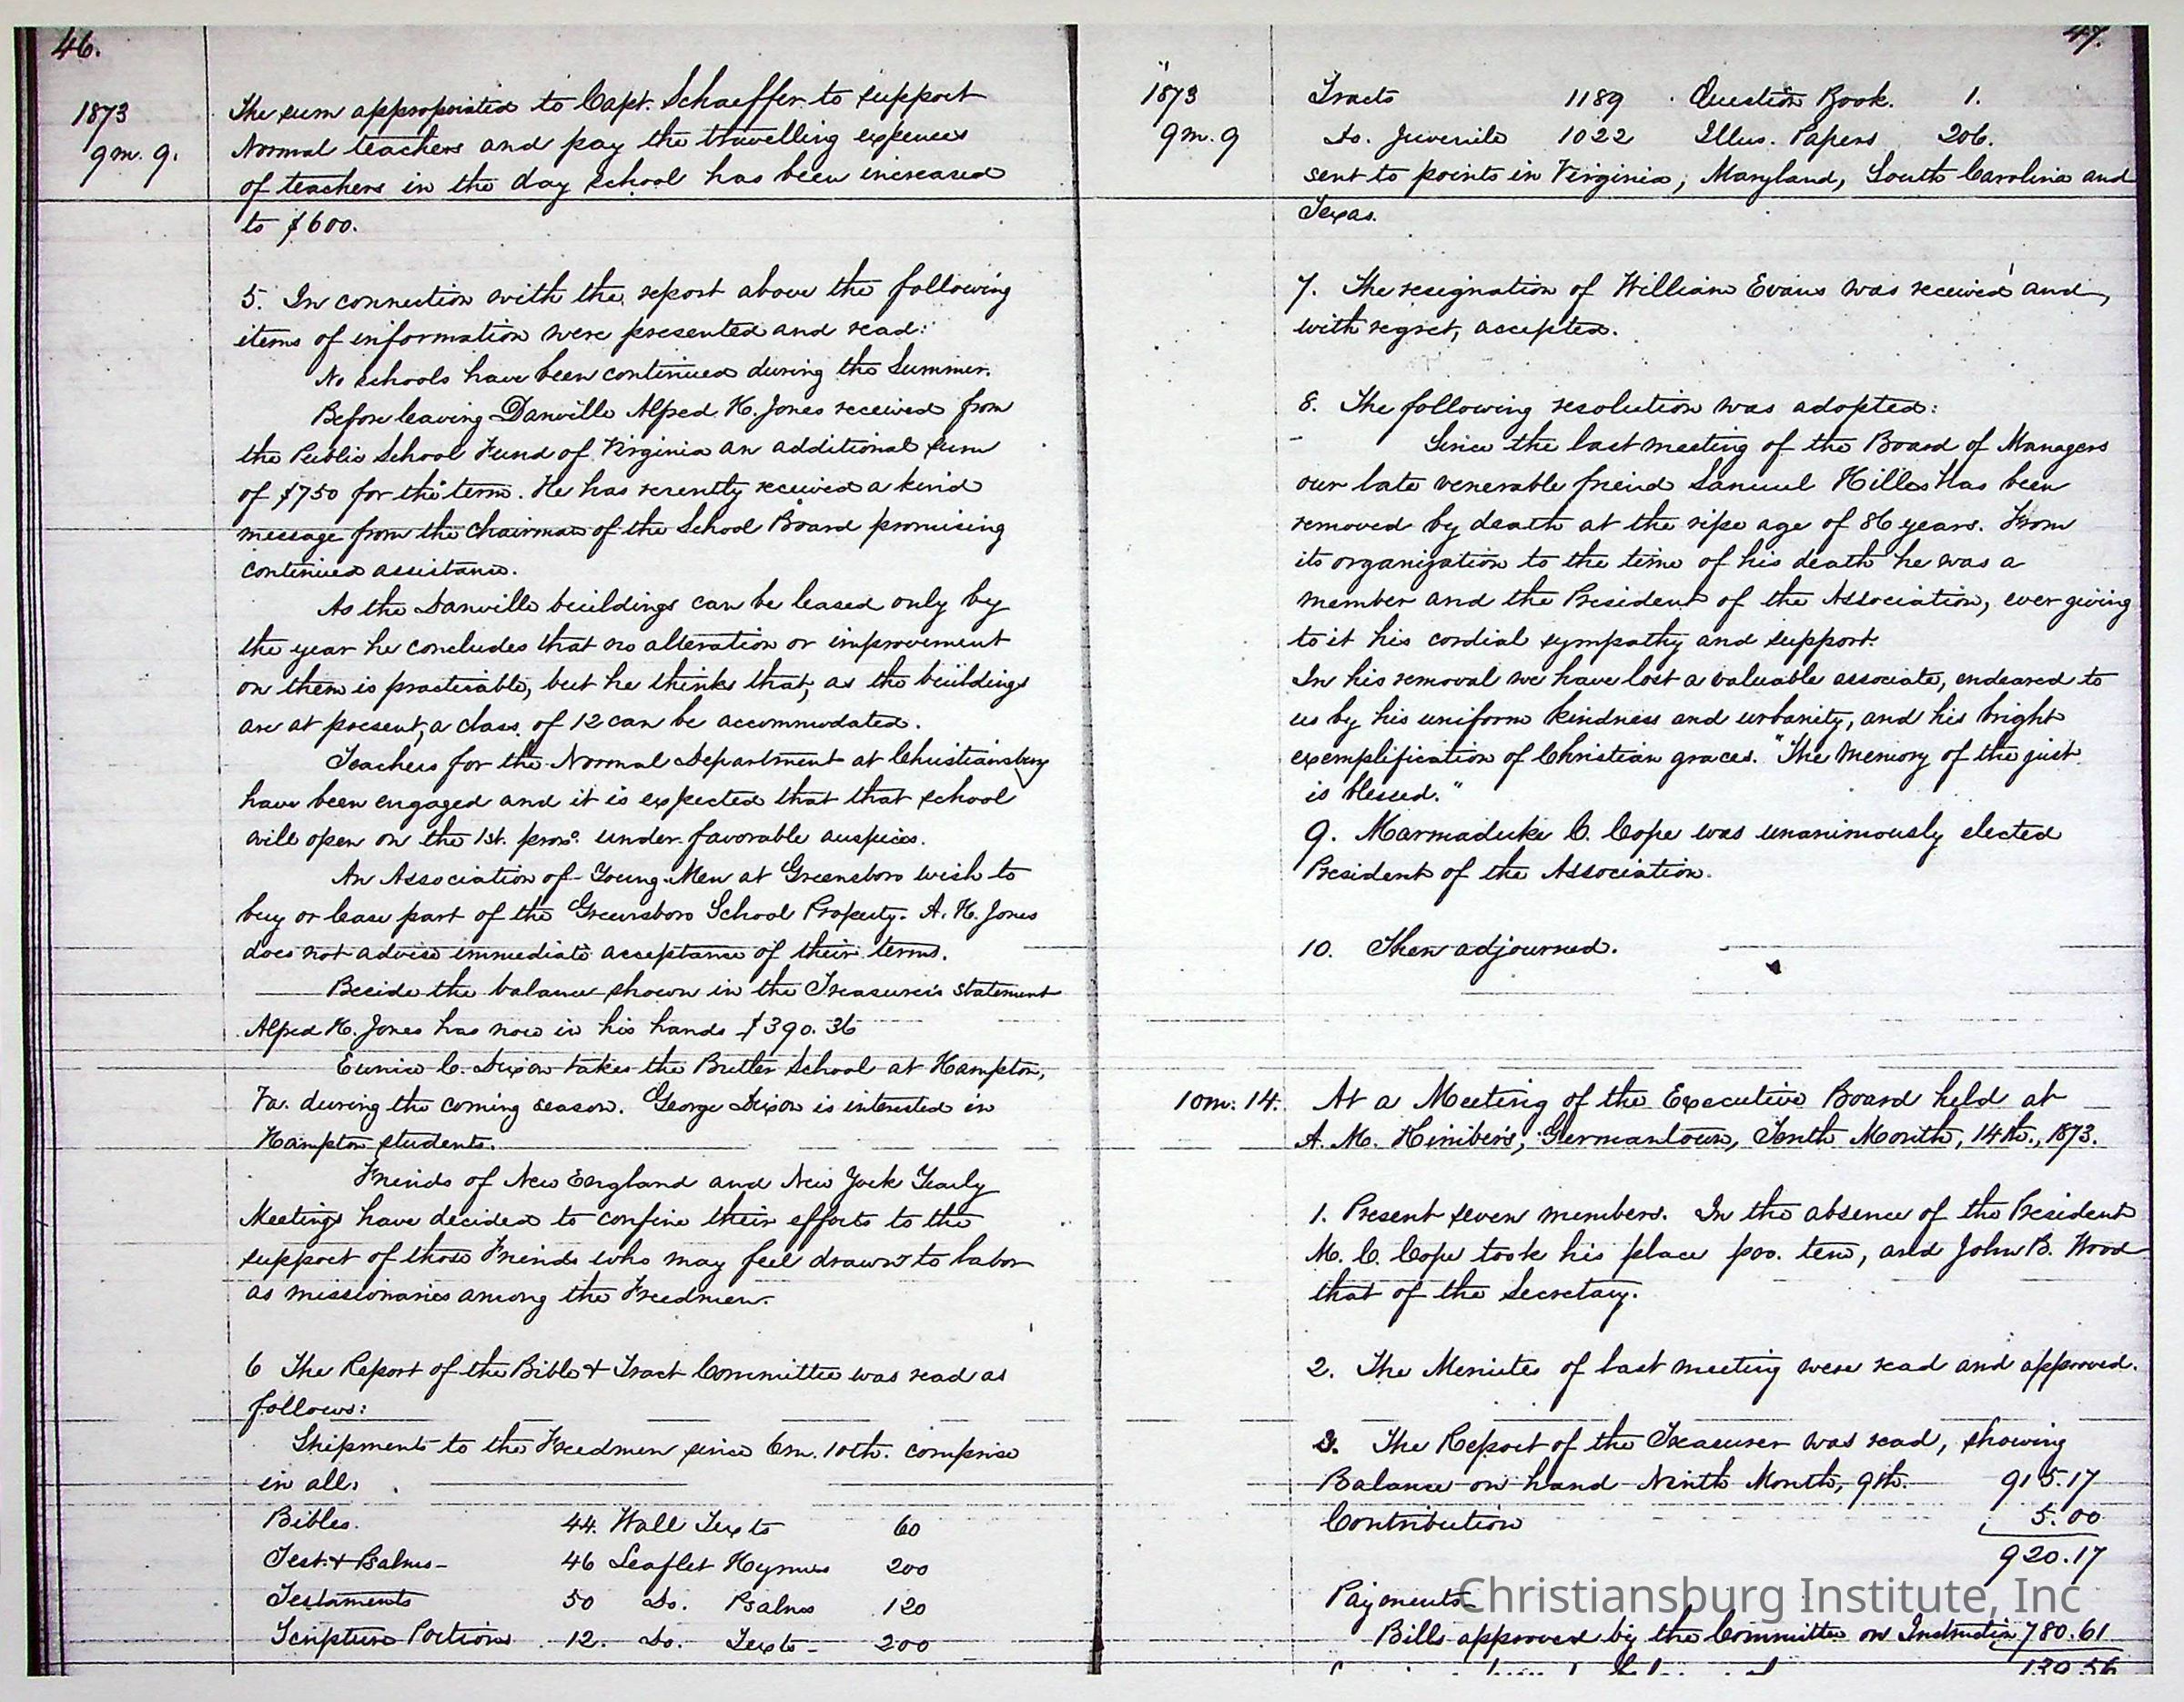 46.
1873
9m. 9.
The sum appropriated to Capt. Schaeffer to support
Normal teachers and pay the travelling expenses
of teachers in the day school has been increased
to $600.
5. In connection with the report above the following
items of information were presented and read:
No schools have been continued during the Summer.
Before leaving Danville Alfred H. Jones received from
the Public School Fund of Virginia an additional sum
of $750 for the term. He has recently received a kind
message from the Chairman of the School Board promising
continued assistance.
As the Danville buildings can be leased only by
the year he concludes that no alteration or improvement
on them is practicable, but he thinks that, as the buildings
are at present, a class of 12 can be accommodated.
Teachers for the Normal Department at Christiansburg
have been engaged and it is expected that that school
will open on the 1st. proxo. under favorable auspices.
An Association of Young Men at Greensboro wish to
buy or lease part of the Greensboro School Property. A. H. Jones
does not advise immediate acceptance of their terms.
Beside the balance shown in the Treasurer's statement
Alfred H. Jones has now in his hands $390.36
Eunice C. Dixon takes the Butler School at Hampton,
Va. during the coming season. George Dixon is interested in
Hampton students.
Friends of New England and New York Yearly
Meetings have decided to confine their efforts to the
support of those Friends who may feel drawn to labor
as missionaries among the Freedmen.
6 The Report of the Bible & Tract Committee was read as
follows:
Shipments to the Freedmen since 6m. 10th. comprise
in all,
Bibles. 44. Wall Texts 60
Test. & Psalms 46 Leaflet Hymns 200
Testaments 50 Do. Psalms 120
Scripture Portions 12. Do. Texts 200
47.
1873
9m. 9
Tracts 1189 Question Book. 1.
Do. Juvenile 1022 Illus. Papers 206.
sent to points in Virginia, Maryland, South Carolina and
Texas.
7. The resignation of William Evans was received and,
with regret, accepted.
8. The following resolution was adopted:
Since the last meeting of the Board of Managers
our late venerable friend Samuel Hilles has been
removed by death at the ripe age of 86 years. From
its organization to the time of his death he was a
member and the President of the Association, ever giving
to it his cordial sympathy and support.
In his removal we have lost a valuable associate, endeared to
us by his uniform kindness and urbanity, and his bright
exemplification of Christian graces. "The memory of the just
is blessed."
9. Marmaduke C. Cope was unanimously elected
President of the Association.
10. Then adjourned.
10m. 14.
At a Meeting of the Executive Board held at
A. M. Kimber's, Germantown, Tenth Month, 14th., 1873.
1. Present seven members. In the absence of the President
M. C. Cope took his place pro. tem, and John B. Wood
that of the Secretary.
2. The Minutes of last meeting were read and approved.
3. The Report of the Treasurer was read, showing
Balance on hand Ninth Month, 9th. 915.17
Contribution 5.00
920.17
Payments
Bills approved by the Committee on Instruction 780.61
139.56
Christiansburg Institute, Inc